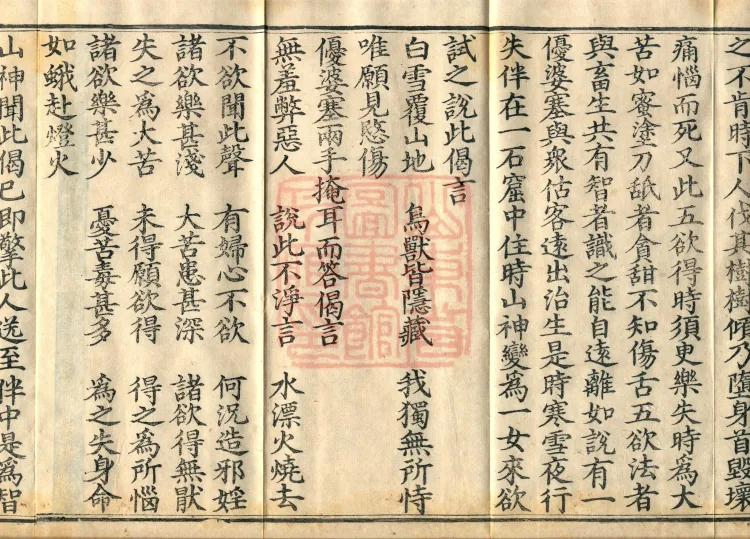 之不肯時下人伐其樹樹傾乃墮身首毀壞
痛惱而死又此五欲得時須臾樂失時爲大
苦如蜜塗刀舐者貪甜不知傷舌五欲法者
與畜生共有智者識之能自遠離如說有一
優婆塞與衆估客遠出治生是時寒雪夜行
失伴在一石窟中住時山神變爲一女來欲
試之說此偈言
白雪覆山地　鳥獸皆隱藏　我獨無所恃
唯願見愍傷
優婆塞兩手掩耳而答偈言
無羞弊惡人　說此不淨言　水漂火燒去
不欲聞此聲　有婦心不欲　何況造邪婬
諸欲樂甚淺　大苦患甚深　諸欲得無猒
失之爲大苦　未得願欲得　得之爲所惱
諸欲樂甚少　憂苦毒甚多　爲之失身命
如蛾赴燈火
山神聞此偈已即擎此人送至伴中是爲智